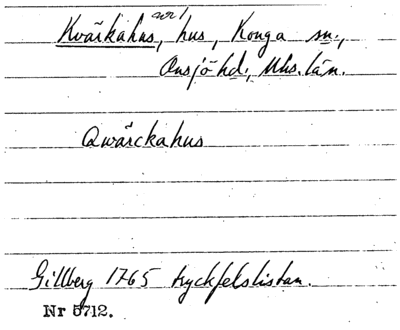 nr 1
Kvärkahus, hus, Konga sn.,
Onsjö hd., Mhs. län.
Qwärckahus
Gillberg 1765 tryckfelslistan.
Nr 5712.